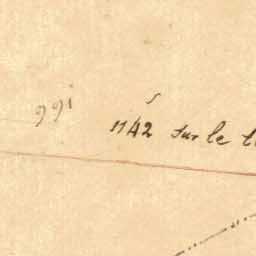 991
1142 sur le